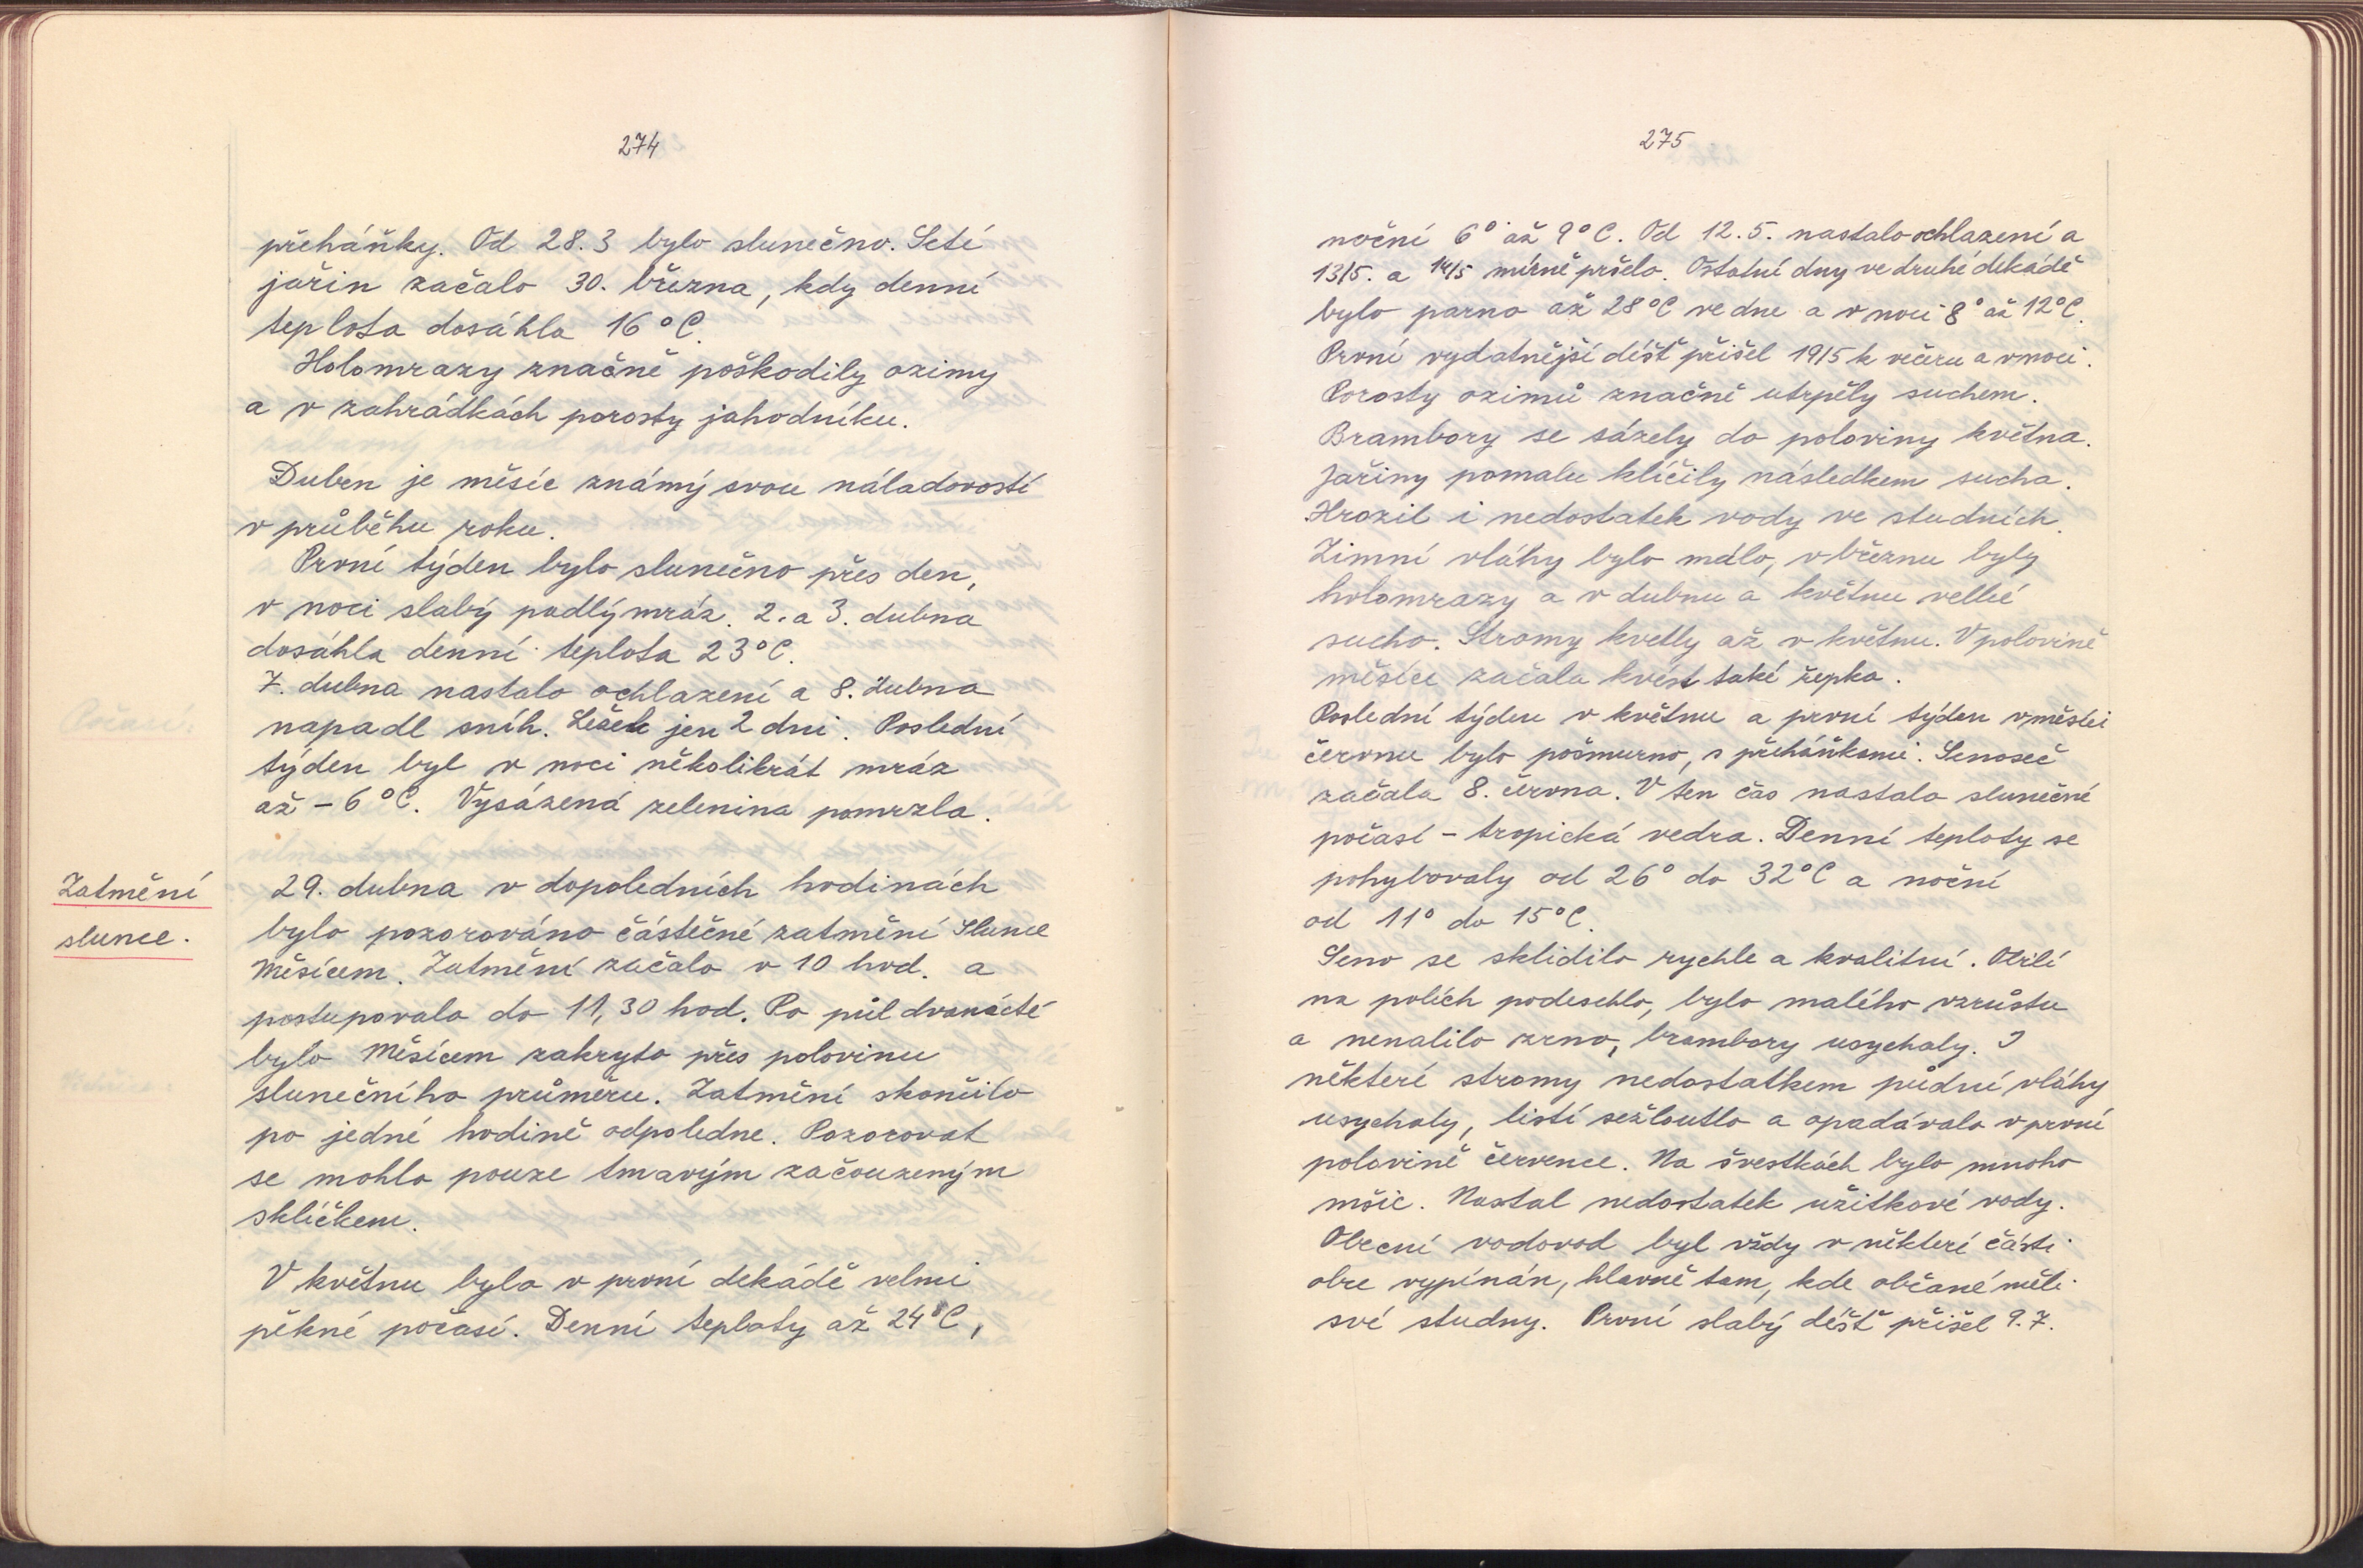 274
přeháňky. Od 28.3 bylo slunečno. Setí
jařin začalo 30. března, kdy denní
teplota dosáhla 16°C.
Holomrazy značně poškodily ozimy
a v zahrádkách porosty jahodníku.
Duben je měsíc známý svou náladovostí
v průběhu roku.
První týden bylo slunečno přes den,
v noci slabý padlý mráz. 2. a 3. dubna
dosáhla denní teplota 23°C.
7. dubna nastalo ochlazení a 8. dubna
napadl sníh. Ležel jen 2 dni. Poslední
týden byl v noci několikrát mráz
až -6°C. Vysázená zelenina pomrzla.
Zatmění
slunce.
29. dubna v dopoledních hodinách
bylo pozorováno částečné zatmění Slunce
Měsícem. Zatmění začalo v 10 hod. a
postupovalo do 11,30 hod. Po půl dvanácté
bylo Měsícem zakryto přes polovinu
slunečního průměru. Zatmění skončilo
po jedné hodině odpoledne. Pozorovat
se mohlo pouze tmavým začouzeným
sklíčkem.
V květnu bylo v první dekádě velmi
pěkné počasí. Denní teploty až 24°C,
275
noční 6° až 9°C. Od 12.5. nastalo ochlazení a
13/5. a 14/5 mírně pršelo. Ostatní dny ve druhé dekádě
bylo parno až 28°C ve dne a v noci 8° až 12°C.
První vydatnější déšť přišel 19/5 k večeru a v noci.
Porosty ozimů značně utrpěly suchem.
Brambory se sázely do poloviny května.
Jařiny pomalu klíčily následkem sucha.
Hrozil i nedostatek vody ve studních.
Zimní vláhy bylo málo, v březnu byly
holomrazy a v dubnu a květnu velké
sucho. Stromy kvetly až v květnu. V polovině
měsíce začala kvést také řepka.
Poslední týden v květnu a první týden v měsíci
červnu bylo pošmurno, s přeháňkami. Senoseč
začala 8. června. V ten čas nastalo slunečné
počasí - tropická vedra. Denní teploty se
pohybovaly od 26° do 32°C a noční
od 11° do 15°C.
Seno se sklidilo rychle a kvalitní. Obilí
na polích podeschlo, bylo malého vzrůstu
a nenalilo zrno, brambory usychaly. I
některé stromy nedostatkem půdní vláhy
usychaly, listí sežloutlo a opadávalo v první
polovině července. Na švestkách bylo mnoho
mšic. Nastal nedostatek užitkové vody.
Obecní vodovod byl vždy v některé části
obce vypínán, hlavně tam, kde občané měli
své studny. První slabý déšť přišel 9.7.